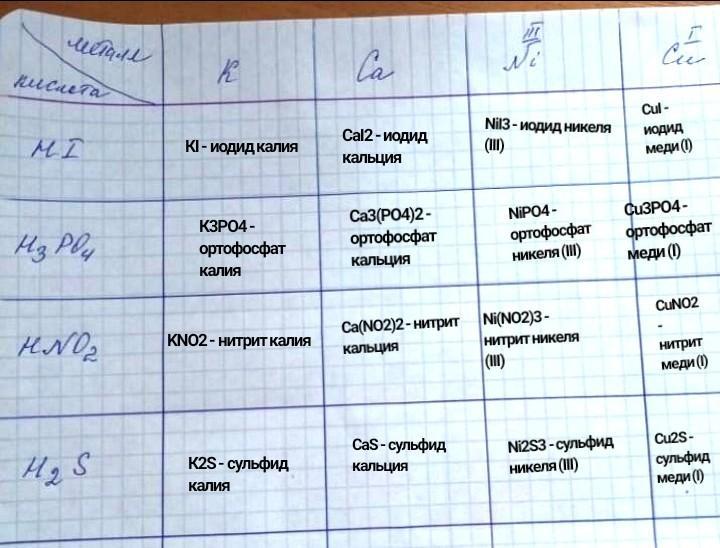 металл
кислота
K
Ca
III
Ni
I
Cu
HI
KI - иодид калия
CaI2 - иодид
кальция
NiI3 - иодид никеля
(III)
CuI -
иодид
меди (I)
H3PO4
K3PO4 -
ортофосфат
калия
Ca3(PO4)2 -
ортофосфат
кальция
NiPO4 -
ортофосфат
никеля (III)
Cu3PO4 -
ортофосфат
меди (I)
HNO2
KNO2 - нитрит калия
Ca(NO2)2 - нитрит
кальция
Ni(NO2)3 -
нитрит никеля
(III)
CuNO2
-
нитрит
меди (I)
H2S
K2S - сульфид
калия
CaS - сульфид
кальция
Ni2S3 - сульфид
никеля (III)
Cu2S -
сульфид
меди (I)